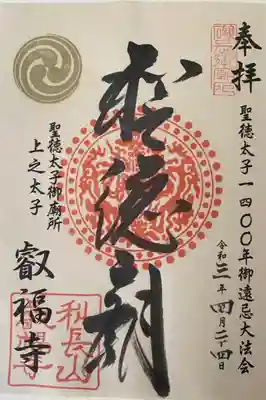 奉拝
聖徳太子一四〇〇年御遠忌大法会
令和三年四月二十四日
聖徳太子御廟所
上之太子
叡福寺
科長山